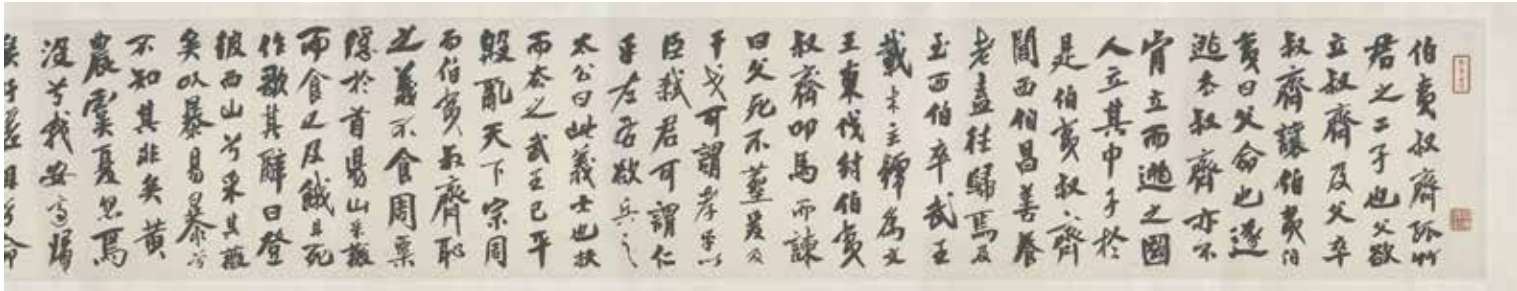 伯夷叔齊孤竹
君之二子也父欲
立叔齊及父卒
叔齊讓伯夷伯
夷曰父命也遂
逃去叔齊亦不
肯立而逃之國
人立其中子於
是伯夷叔齊
聞西伯昌善養
老盍往歸焉及
至西伯卒武王
載木主號為文
王東伐紂伯夷
叔齊叩馬而諫
曰父死不葬爰及
干戈可謂孝乎以
臣弒君可謂仁
乎左右欲兵之
太公曰此義士也扶
而去之武王已平
殷亂天下宗周
而伯夷叔齊恥
之義不食周粟
隱於首陽山采薇
而食之及餓且死
作歌其辭曰登
彼西山兮采其薇
矣以暴易暴兮
不知其非矣黃
農虞夏忽焉
沒兮我安適歸
矣于嗟徂兮命